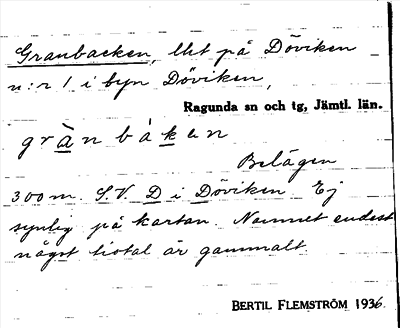 Granbacken, lht på Döviken
n:r 1 i byn Döviken,
Ragunda sn och tg, Jämtl. län.
gràn bàken
Belägen
300 m. S.V. D i Döviken. Ej
synlig på kartan. Namnet endast
något tiotal år gammalt.
BERTIL FLEMSTRÖM 1936.